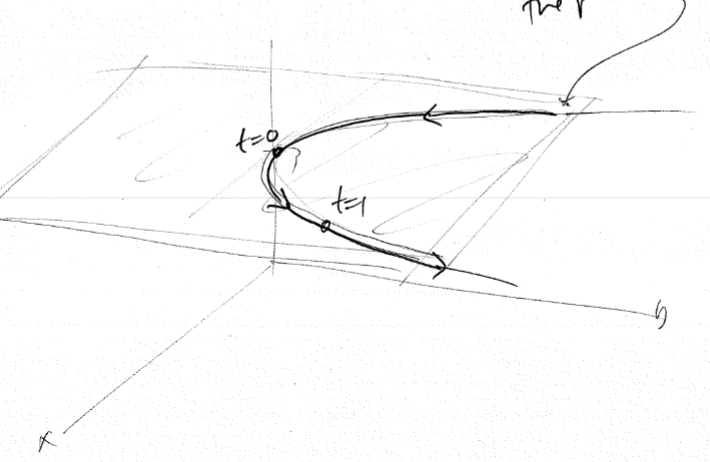 the
t=0
t=1
y
x